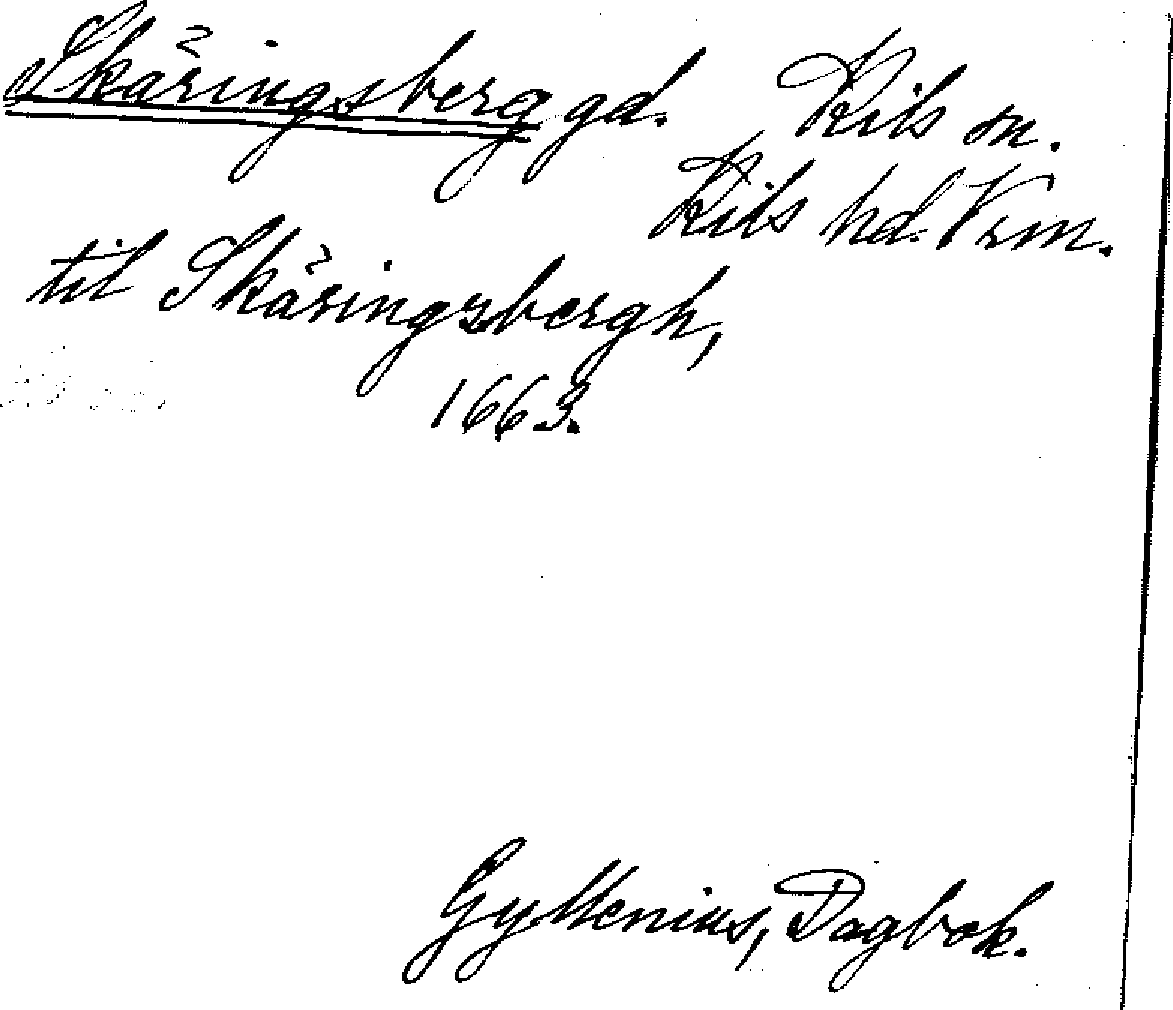 Skäringsberg gd. Kils sn.
Kils hd. Vrm.
til Skäringsbergh,
1663.
Gyllenius, Dagbok.